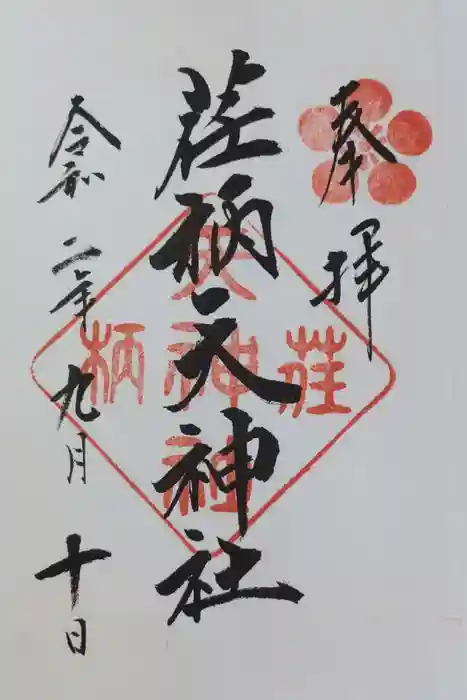 奉拝
荏柄天神社
令和二年九月十日
荏
天神社
柄